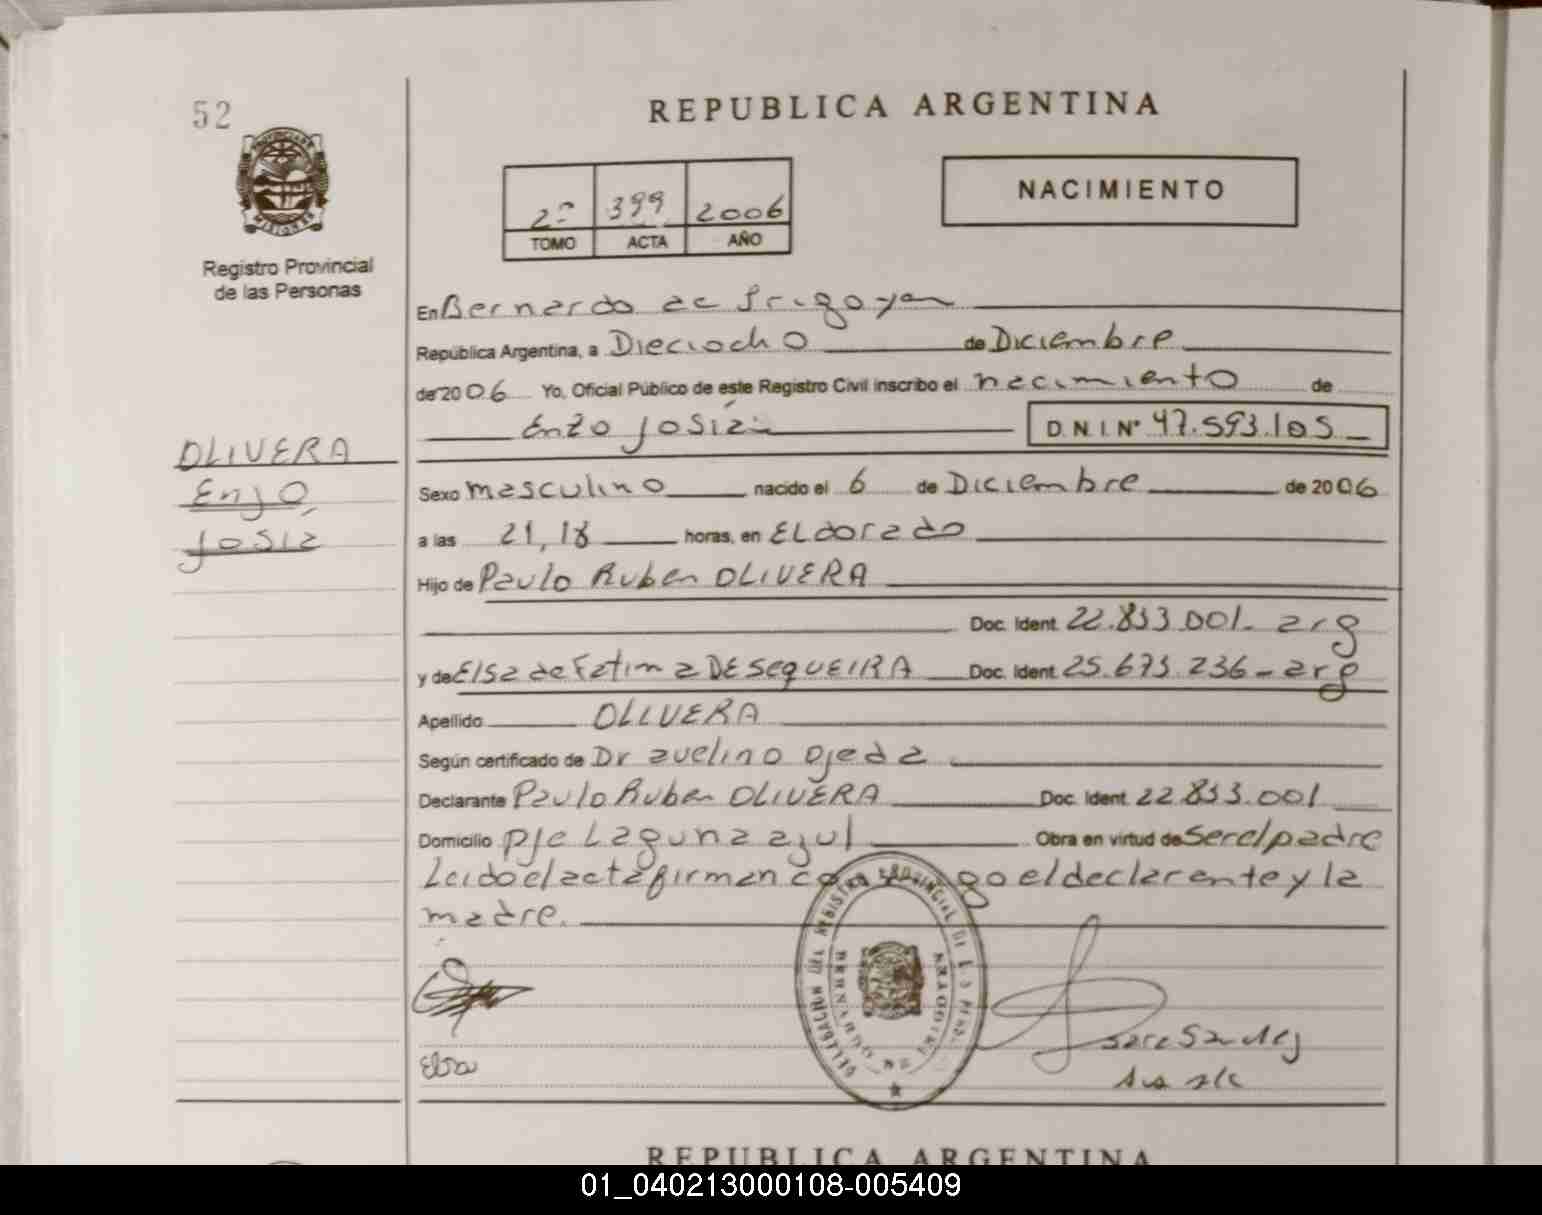 52
REPUBLICA ARGENTINA
PROVINCIA DE
MISIONES
Registro Provincial
de las Personas
2º 399 2006
TOMO ACTA AÑO
NACIMIENTO
En Bernardo de Irigoyen
República Argentina, a Dieciocho de Diciembre
de 2006 Yo, Oficial Público de este Registro Civil inscribo el nacimiento de
Enzo Josía D.N.I. Nº 47.593.105
OLIVERA
Enzo
Josía
Sexo masculino nacido el 6 de Diciembre de 2006
a las 21,18 horas, en ELdorado
Hijo de Paulo Ruben OLIVERA
Doc. Ident. 22.833.001- arg
y de Elsa de Fatima DE SeqUEIRA Doc. Ident. 25.673.236- arg
Apellido OLIVERA
Según certificado de Dr avelino Ojeda
Declarante Paulo Ruben OLIVERA Doc. Ident. 22.833.001
Domicilio pje Laguna azul Obra en virtud de Ser el padre
Leido el acta firman go el declarante y la
madre.
DELEGACION DEL REGISTRO PROVINCIAL DE
BERNARDO DE IRIGOYEN
Elsa
REPUBLICA ARGENTINA
01_040213000108-005409